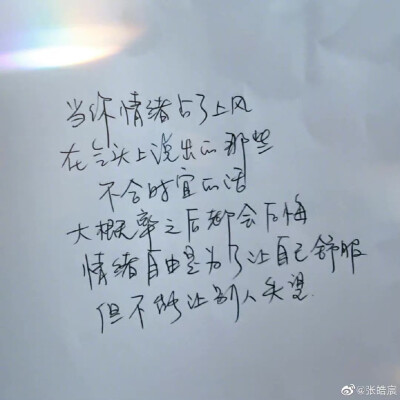 当你情绪占了上风
在气头上说出的那些
不合时宜的话
大概率之后都会后悔
情绪自由是为了让自己舒服
但不能让别人失望.
@张皓宸